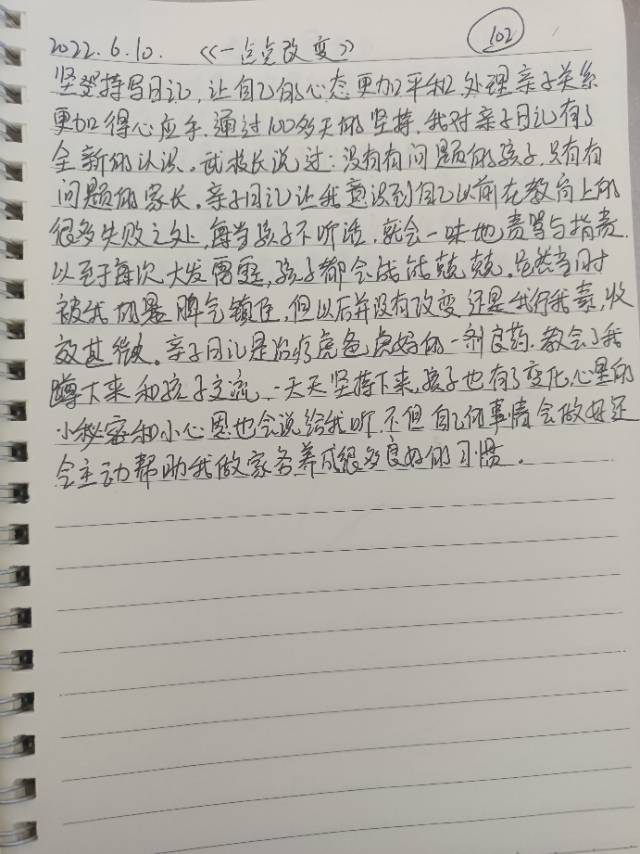 2022.6.10. 《一点点改变》 102
坚持写日记,让自己的心态更加平和,处理亲子关系
更加得心应手.通过100多天的坚持,我对亲子日记有了
全新的认识。武校长说过:没有有问题的孩子,只有有
问题的家长。亲子日记让我意识到自己以前在教育上的
很多失败之处,每当孩子不听话,就会一味地责骂与指责.
以至于每次大发雷霆,孩子都会战战兢兢.虽然当时
被我的暴脾气镇住,但以后并没有改变还是我行我素,收
效甚微。亲子日记是治疗虎爸虎妈的一剂良药.教会了我
蹲下来和孩子交流,一天天坚持下来,孩子也有了变化,心里的
小秘密和小心思也会说给我听.不但自己的事情会做好还
会主动帮助我做家务养成很多良好的习惯。